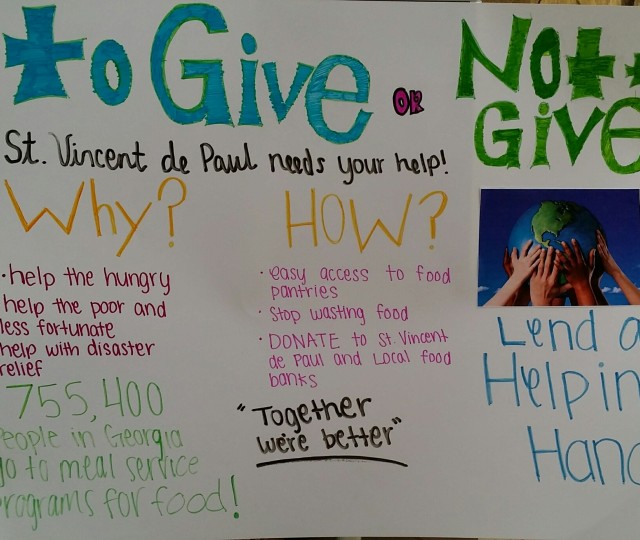 to Give OR Not to
Give
St. Vincent de Paul needs your help!
Why?
· help the hungry
help the poor and
less fortunate
help with disaster
relief
755,400
People in Georgia
go to meal service
programs for food!
HOW?
· easy access to food
pantries
· Stop wasting food
· DONATE to St. Vincent
de Paul and Local food
banks
"Together
we're better"
Lend a
Helpin
Hand